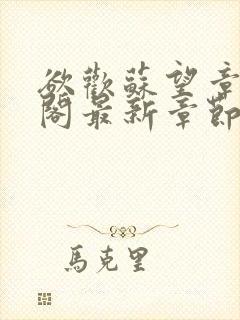 欲歡蘇望章
閣最新章節
馬克里